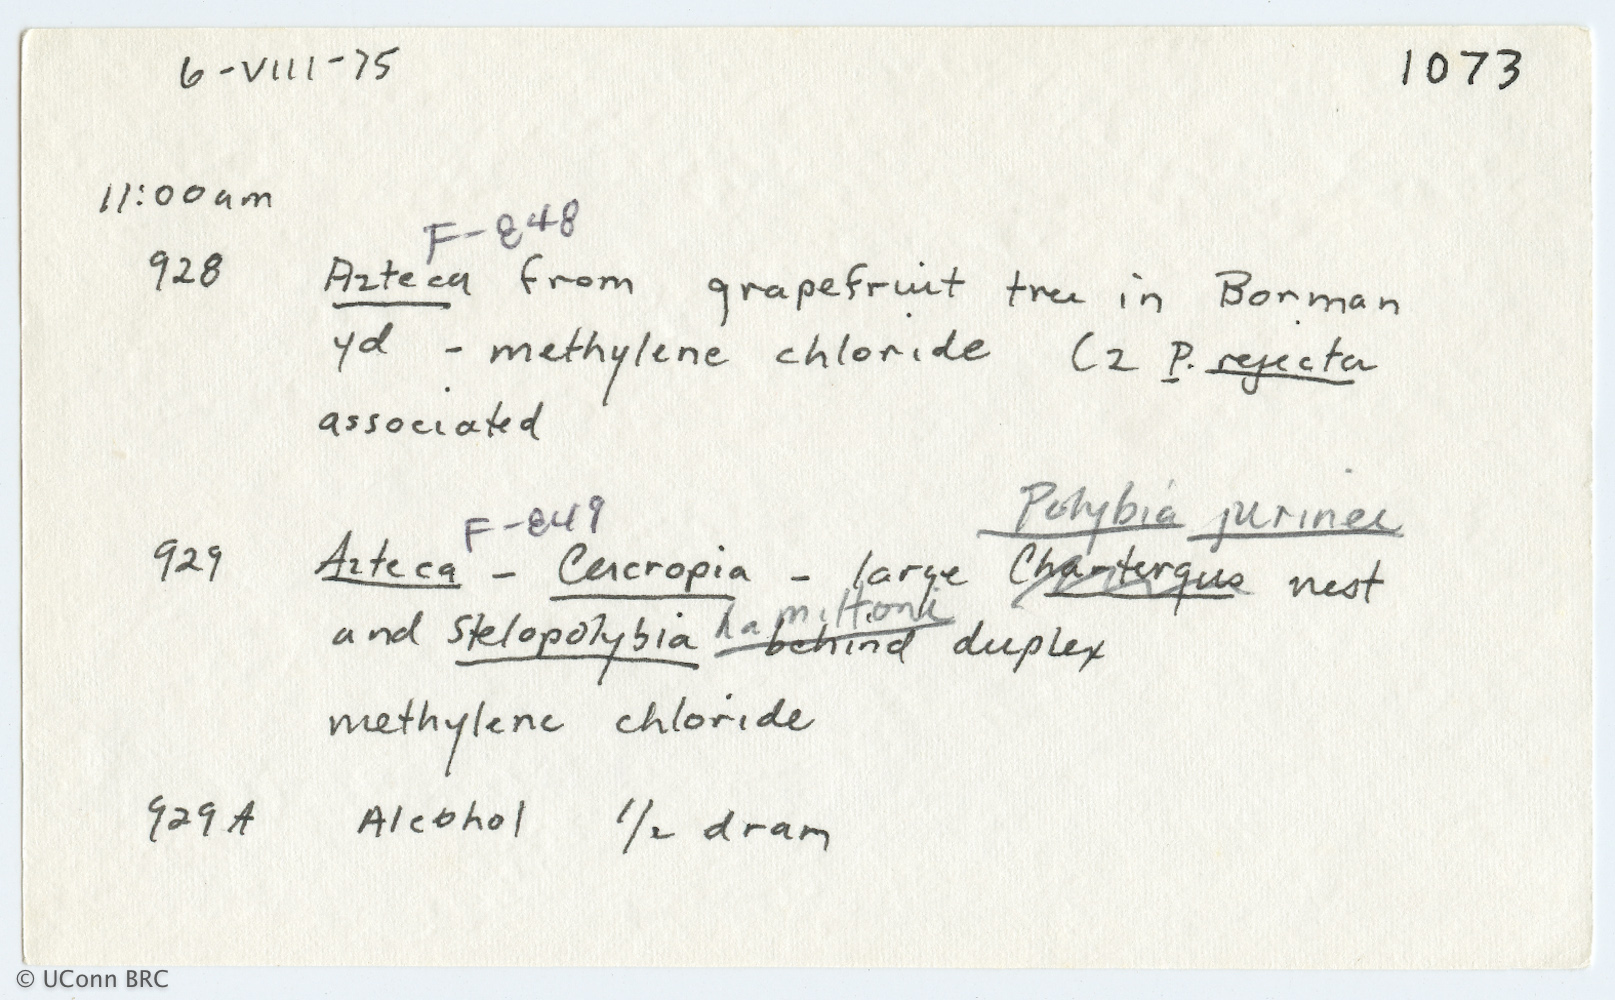 6-VIII-75
1073
11:00am
F-848
928 Azteca from grapefruit tree in Borman
yd - methylene chloride (2 P. rejecta
associated
Polybia jurinei
F-849
929 Azteca - Cercropia - large Chartergus nest
hamiltoni
and Stelopolybia behind duplex
methylene chloride
929 A Alcohol 1/2 dram
© UConn BRC